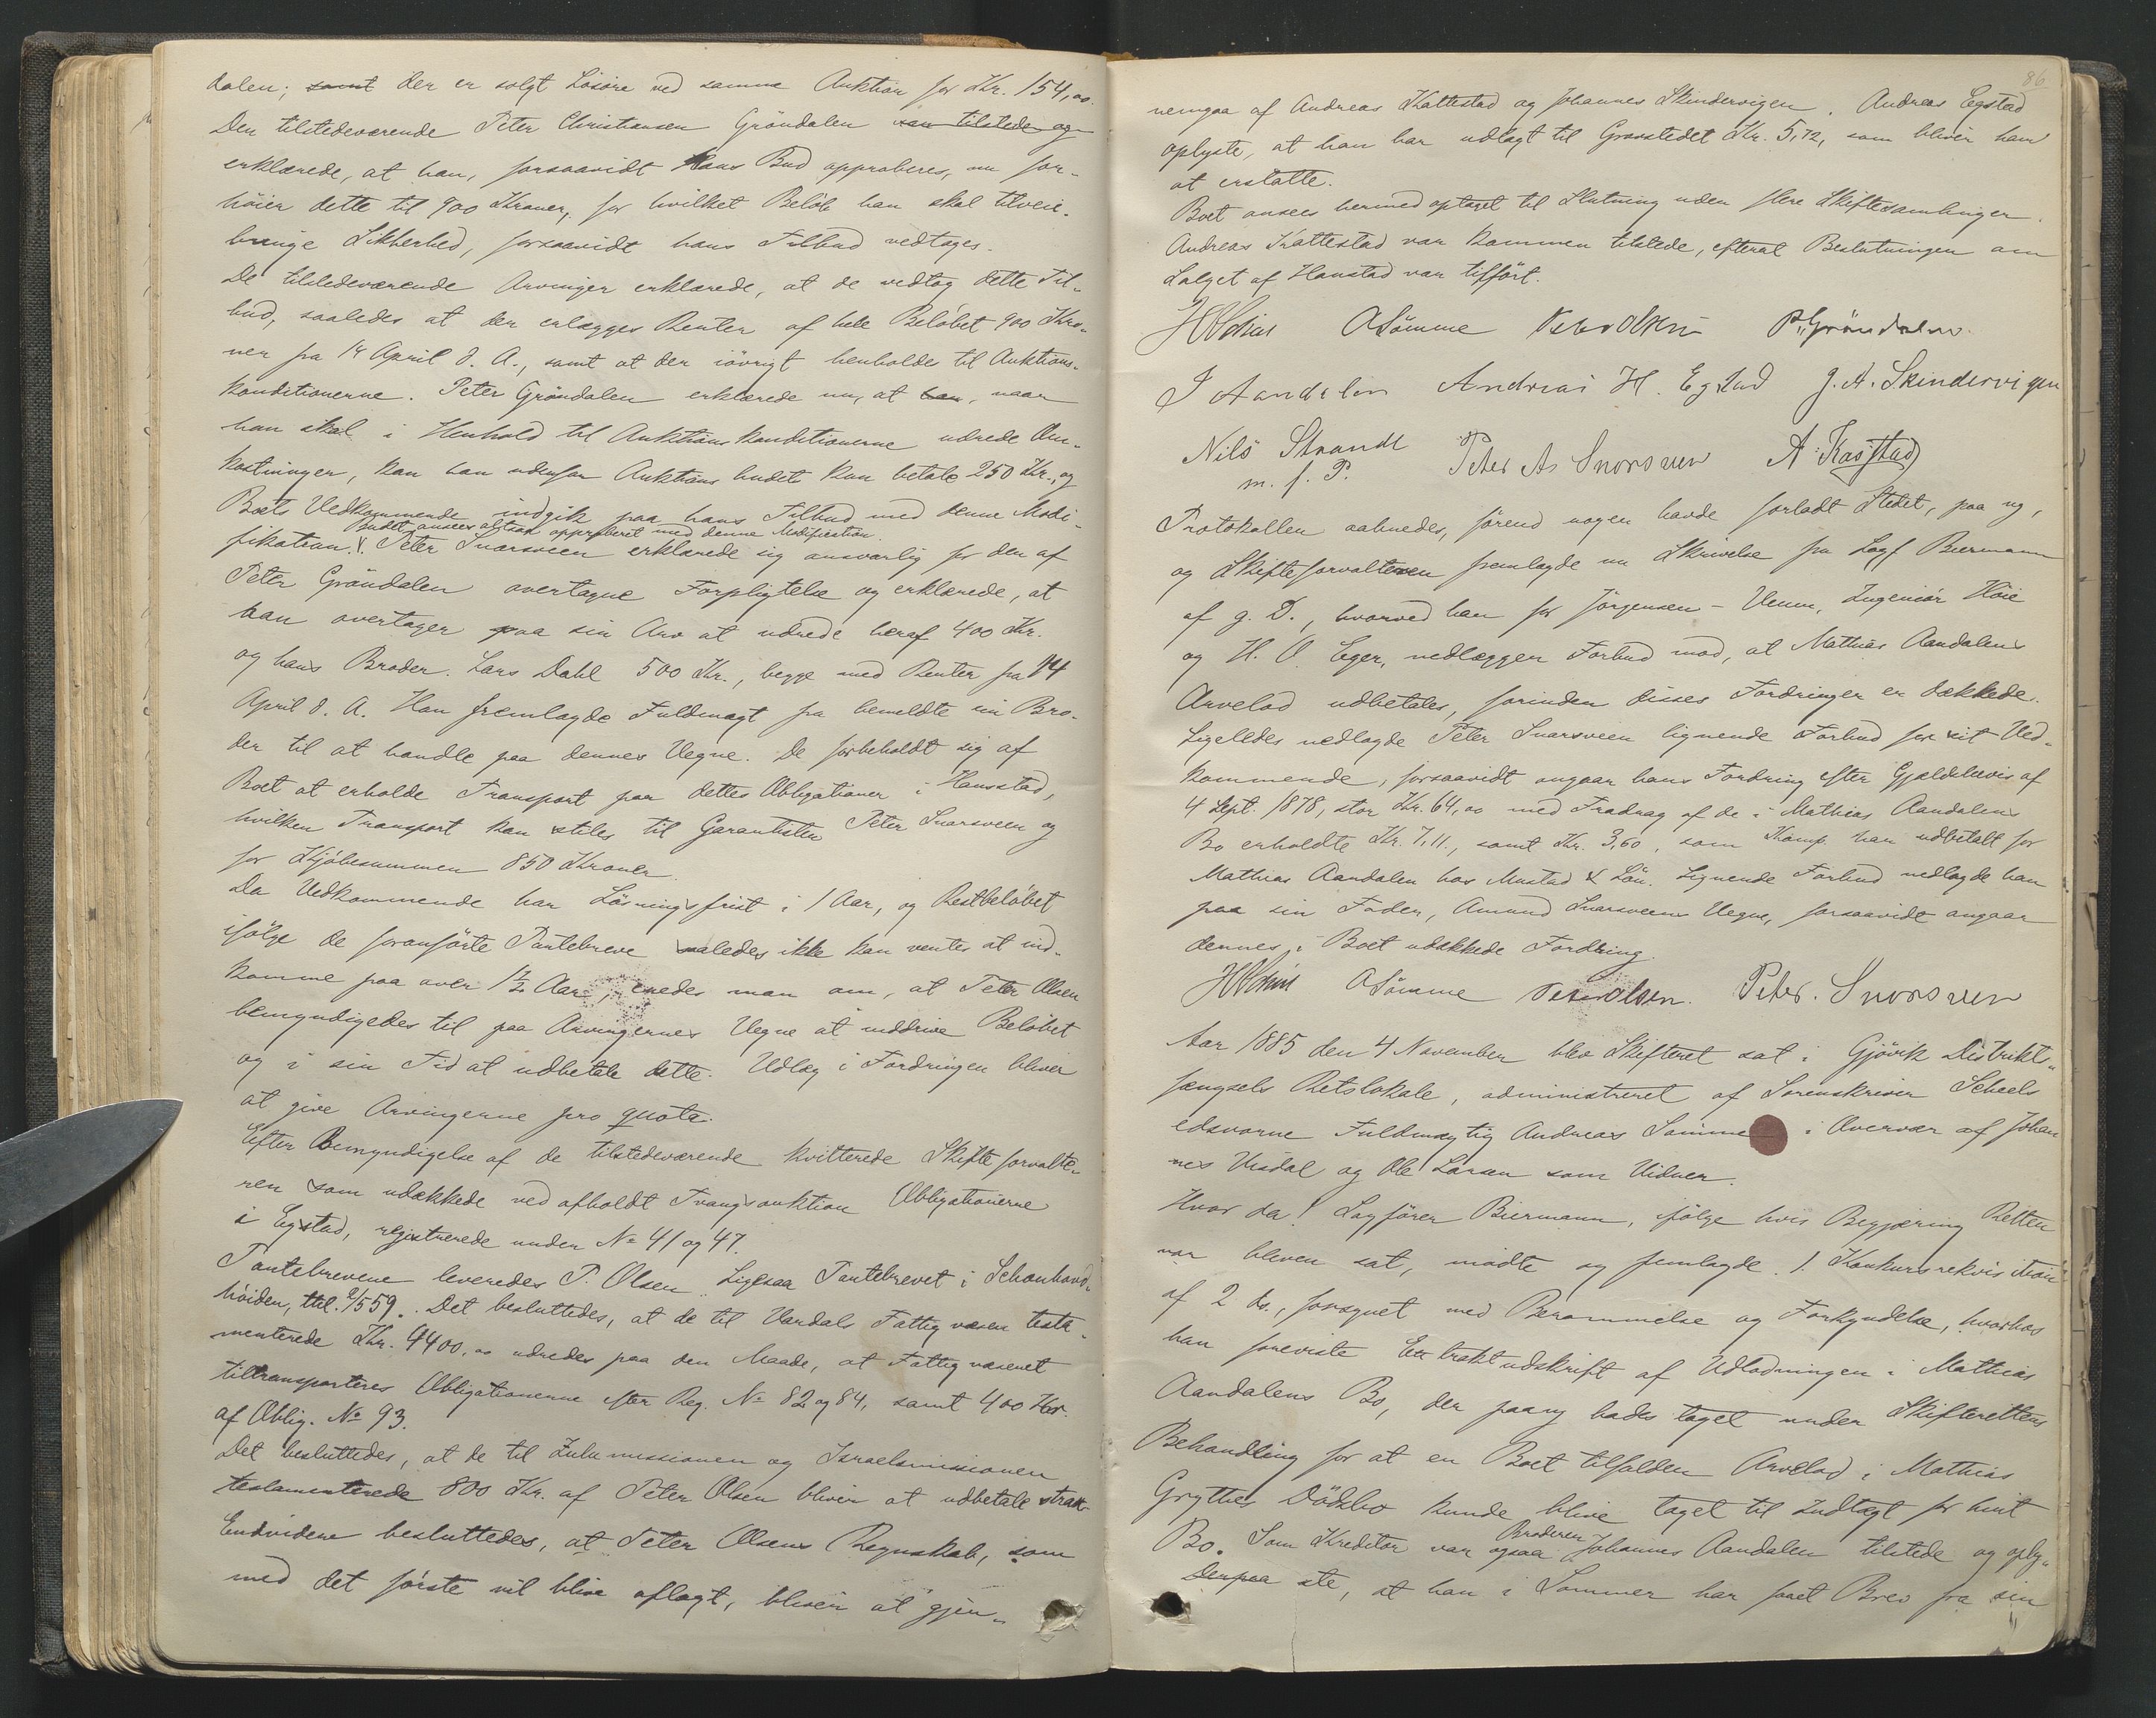 dalen; samt der er solgt Lösöre ved samme Auktion for Kr. 154,00.
Den tilstedeværende Peter Christiansen Gröndalen var tilstede og
erklærede, at han, forsaavidt Hans Bud approberes, nu for-
höier dette til 900 Kroner, for hvilket Belöb han skal tilveie-
bringe Sikkerhed, forsaavidt hans Tilbud vedtages.
De tilstedeværende Arvinger erklærede, at de vedtog dette Til-
bud, saaledes at der erlægges Renter af hele Belöbet 900 Kro-
ner fra 14 April d. A., samt at der iövrigt henholde til Auktions-
konditionerne. Peter Gröndalen erklærede nu, at han, naar
han skal i Henhold til Auktionskonditionerne udrede Om-
kostninger, kan han udenfor Auktionsbudet kun betale 250 Kr., og
Boets Vedkommende indgik paa hans Tilbud med denne Modi-
Budet ansees altsaa approberet med denne Modifikation.
fikation. Peter Snarsveen erklærede sig ansvarlig for den af
Peter Gröndalen overtagne Forpligtelse og erklærede, at
han overtager paa sin Arv at udrede heraf 400 Kr.
og hans Broder. Lars Dahl 500 Kr., begge med Renter fra 14
April d. A. Han fremlagde Fuldmagt fra bemeldte sin Bro-
der til at handle paa dennes Vegne. De forbeholdt sig af
Boet at erholde Transport paa dettes Obligationer i Hanstad,
hvilken Transport kan stiles til Garantisten Peter Snarsveen og
for Kjöbesummen 850 Kroner.
Da Vedkommende har Läsningsfrist i 1 Aar, og Restbelöbet
ifölge de foranförte Pantebreve saaledes ikke kan ventes at ind-
komme paa over 1½ Aar, enedes man om, at Peter Olsen
bemyndigedes til paa Arvingernes Vegne at inddrive Belöbet
og i sin Tid at udbetale dette. Udlæg i Fordringen bliver
at give Arvingerne pro quota.
Efter Bemyndigelse af de tilstedeværende kvitterede Skifteforvalte-
ren som udækkede ved afholdt Tvangsauktion Obligationerne
i Egstad, registrerede under No 41 og 47.
Pantebrevene leveredes P. Olsen. Ligesaa Pantebrevet i Schonhovd-
höiden, 2/559. Det besluttedes, at de til Vardals Fattigvæsen testa-
menterede Kr. 4400,00 udredes paa den Maade, at Fattigvæsenet
tiltransporteres Obligationerne efter Reg. No 82 og 84, samt 400 Kr.
af Oblig. No 93.
Det besluttedes, at de til Zulumissionen og Israelsmissionen
testamenterede 800 Kr. af Peter Olsen bliver at udbetale strax.
Endvidere besluttedes, at Peter Olsens Regnskab, som
med det förste vil blive aflagt, bliver at gjen-
86
nemgaa af Andreas Kattestad og Johannes Skindervigen. Andreas Egstad
oplyste, at han har udlagt til Gravstedet Kr. 5,72, som bliver ham
at erstatte.
Boet ansees hermed optaget til Slutning uden flere Skiftesamlinger.
Andreas Kattestad var kommen tilstede, efterat Beslutningen om
Salget af Hanstad var tilfört.
ASömme Peter Olsen P. Gröndalen.
J Aandalen Andreas H. Egstad J. A. Skindervigen
Nils Strande Peter As Snorsven A. Kastad
m. f. P.
Protokollen aabnedes, förend nogen havde forladt Stedet, paa ny,
og Skifteforvalteren fremlagde en Skrivelse fra Sagf. Biermann
af g. D., hvorved han for Jörgensen - Venn, Ingeniör Höie
og H. O. Eger, nedlægger Forbud mod, at Mathias Aandalens
Arvelod udbetales, forinden disses Fordringer er dækkede.
Ligeledes nedlagde Peter Snarsveen lignende Forbud for sit Ved-
kommende, forsaavidt angaar hans Fordring efter Gjældsbevis af
4 Sept. 1878, stor Kr. 64,00 med Fradrag af de i Mathias Aandalens
Bo erholdte Kr. 7,11., samt Kr. 3,60, som Komp. har udbetalt for
Mathias Aandalen hos Mustad & Sön. Lignende Forbud nedlagde han
paa sin Fader, Amund Snarsveens Vegne, forsaavidt angaar
dennes i Boet udækkede Fordring.
ASömme Peter Olsen. Peter. Snorsven
Aar 1885 den 4 November blev Skifteret sat i Gjövik Distrikts-
fængsels Retslokale, administreret af Sorenskriver Scheels
edsvorne Fuldmægtig Andreas Sömme i Overvær af Johan
nes Uisdal og Ole Larsen som Vidner.
Hvor da! Sagförer Biermann, ifölge hvis Begjæring Retten
var bleven sat, mödte og fremlagde 1 Konkursrekvisition
af 2 ds., forsynet med Berammelse og Forkyndelse, hvorhos
han foreviste Extraktudskrift af Udlodningen i Mathias
Aandalens Bo, der paany bades taget under Skifterettens
Behandling for at en Boet tilfalden Arvelod i Mathias
Grythes Dödsbo kunde blive taget til Indtægt for hint
Bo. Som Kreditor var ogsaa Broderen Johannes Aandalen tilstede og oply-
Derpaa ste, at han i Sommer har faaet Brev fra sin